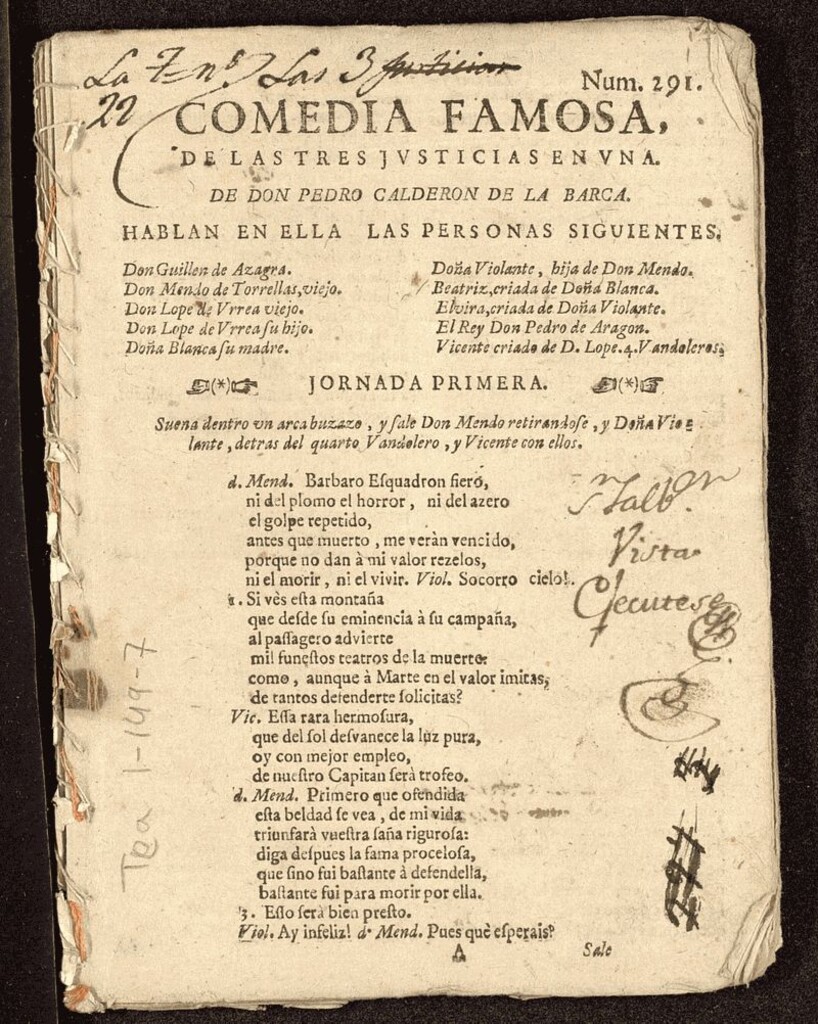 La 7 nº 7 Las 3 Justicias
Num. 291.
22
COMEDIA FAMOSA,
DE LAS TRES JVSTICIAS EN VNA.
DE DON PEDRO CALDERON DE LA BARCA.
HABLAN EN ELLA LAS PERSONAS SIGUIENTES.
Don Guillen de Azagra.
Don Mendo de Torrellas, viejo.
Don Lope de Vrrea viejo.
Don Lope de Vrrea ſu hijo.
Doña Blanca ſu madre.
Doña Violante, hija de Don Mendo.
Beatriz, criada de Doña Blanca.
Elvira, criada de Doña Violante.
El Rey Don Pedro de Aragon.
Vicente criado de D. Lope. 4. Vandoleros.
☞(*)☞ JORNADA PRIMERA. ☞(*)☞
Suena dentro vn arcabuzazo, y ſale Don Mendo retirandoſe, y Doña Vio-
lante, detras del quarto Vandolero, y Vicente con ellos.
d. Mend. Barbaro Eſquadron fiero,
ni del plomo el horror, ni del azero
el golpe repetido,
antes que muerto, me veràn vencido,
porque no dan à mi valor rezelos,
ni el morir, ni el vivir. Viol. Socorro cielo!
1. Si vès eſta montaña
que deſde ſu eminencia à ſu campaña,
al paſſagero advierte
mil funeſtos teatros de la muerte:
como, aunque à Marte en el valor imitas,
de tantos defenderte ſolicitas?
Vic. Eſſa rara hermoſura,
que del ſol deſvanece la luz pura,
oy con mejor empleo,
de nueſtro Capitan ſerà trofeo.
d. Mend. Primero que ofendida
eſta beldad ſe vea, de mi vida
triunfarà vueſtra ſaña riguroſa:
diga deſpues la fama proceloſa,
que ſino fui baſtante à defendella,
baſtante fui para morir por ella.
3. Eſſo ſerà bien preſto.
Viol. Ay infeliz! d. Mend. Pues què eſperais?
A
Sale
Vista
Tea 1-149-7